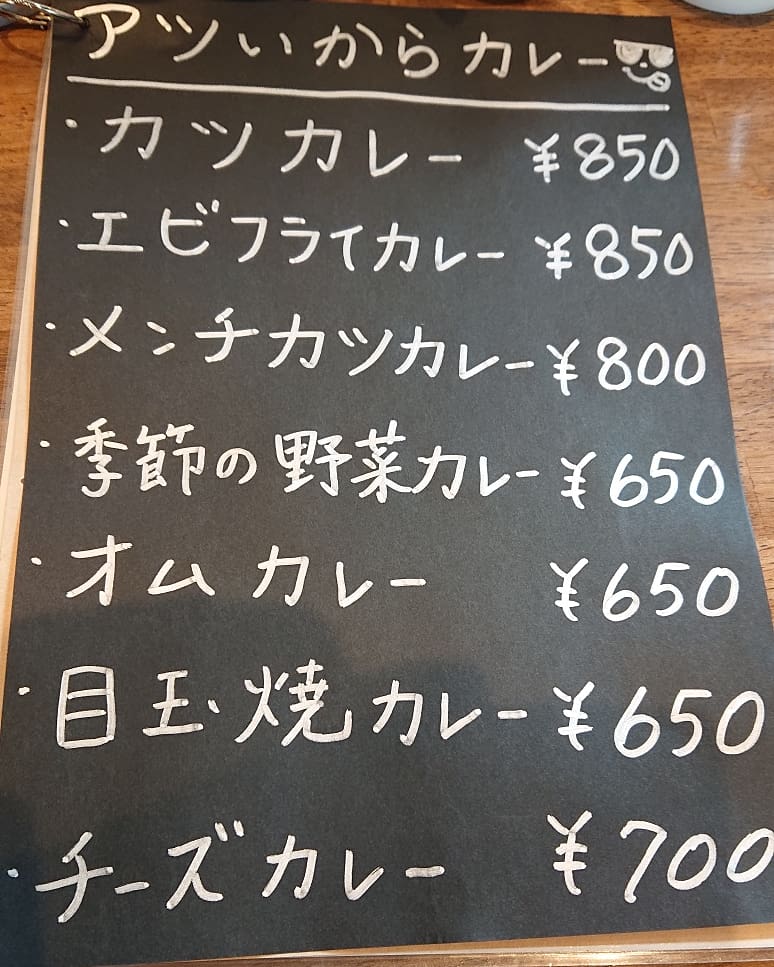 アツいからカレー
・カツカレー ¥850
・エビフライカレー ¥850
・メンチカツカレー ¥800
・季節の野菜カレー ¥650
・オムカレー ¥650
・目玉焼カレー ¥650
・チーズカレー ¥700